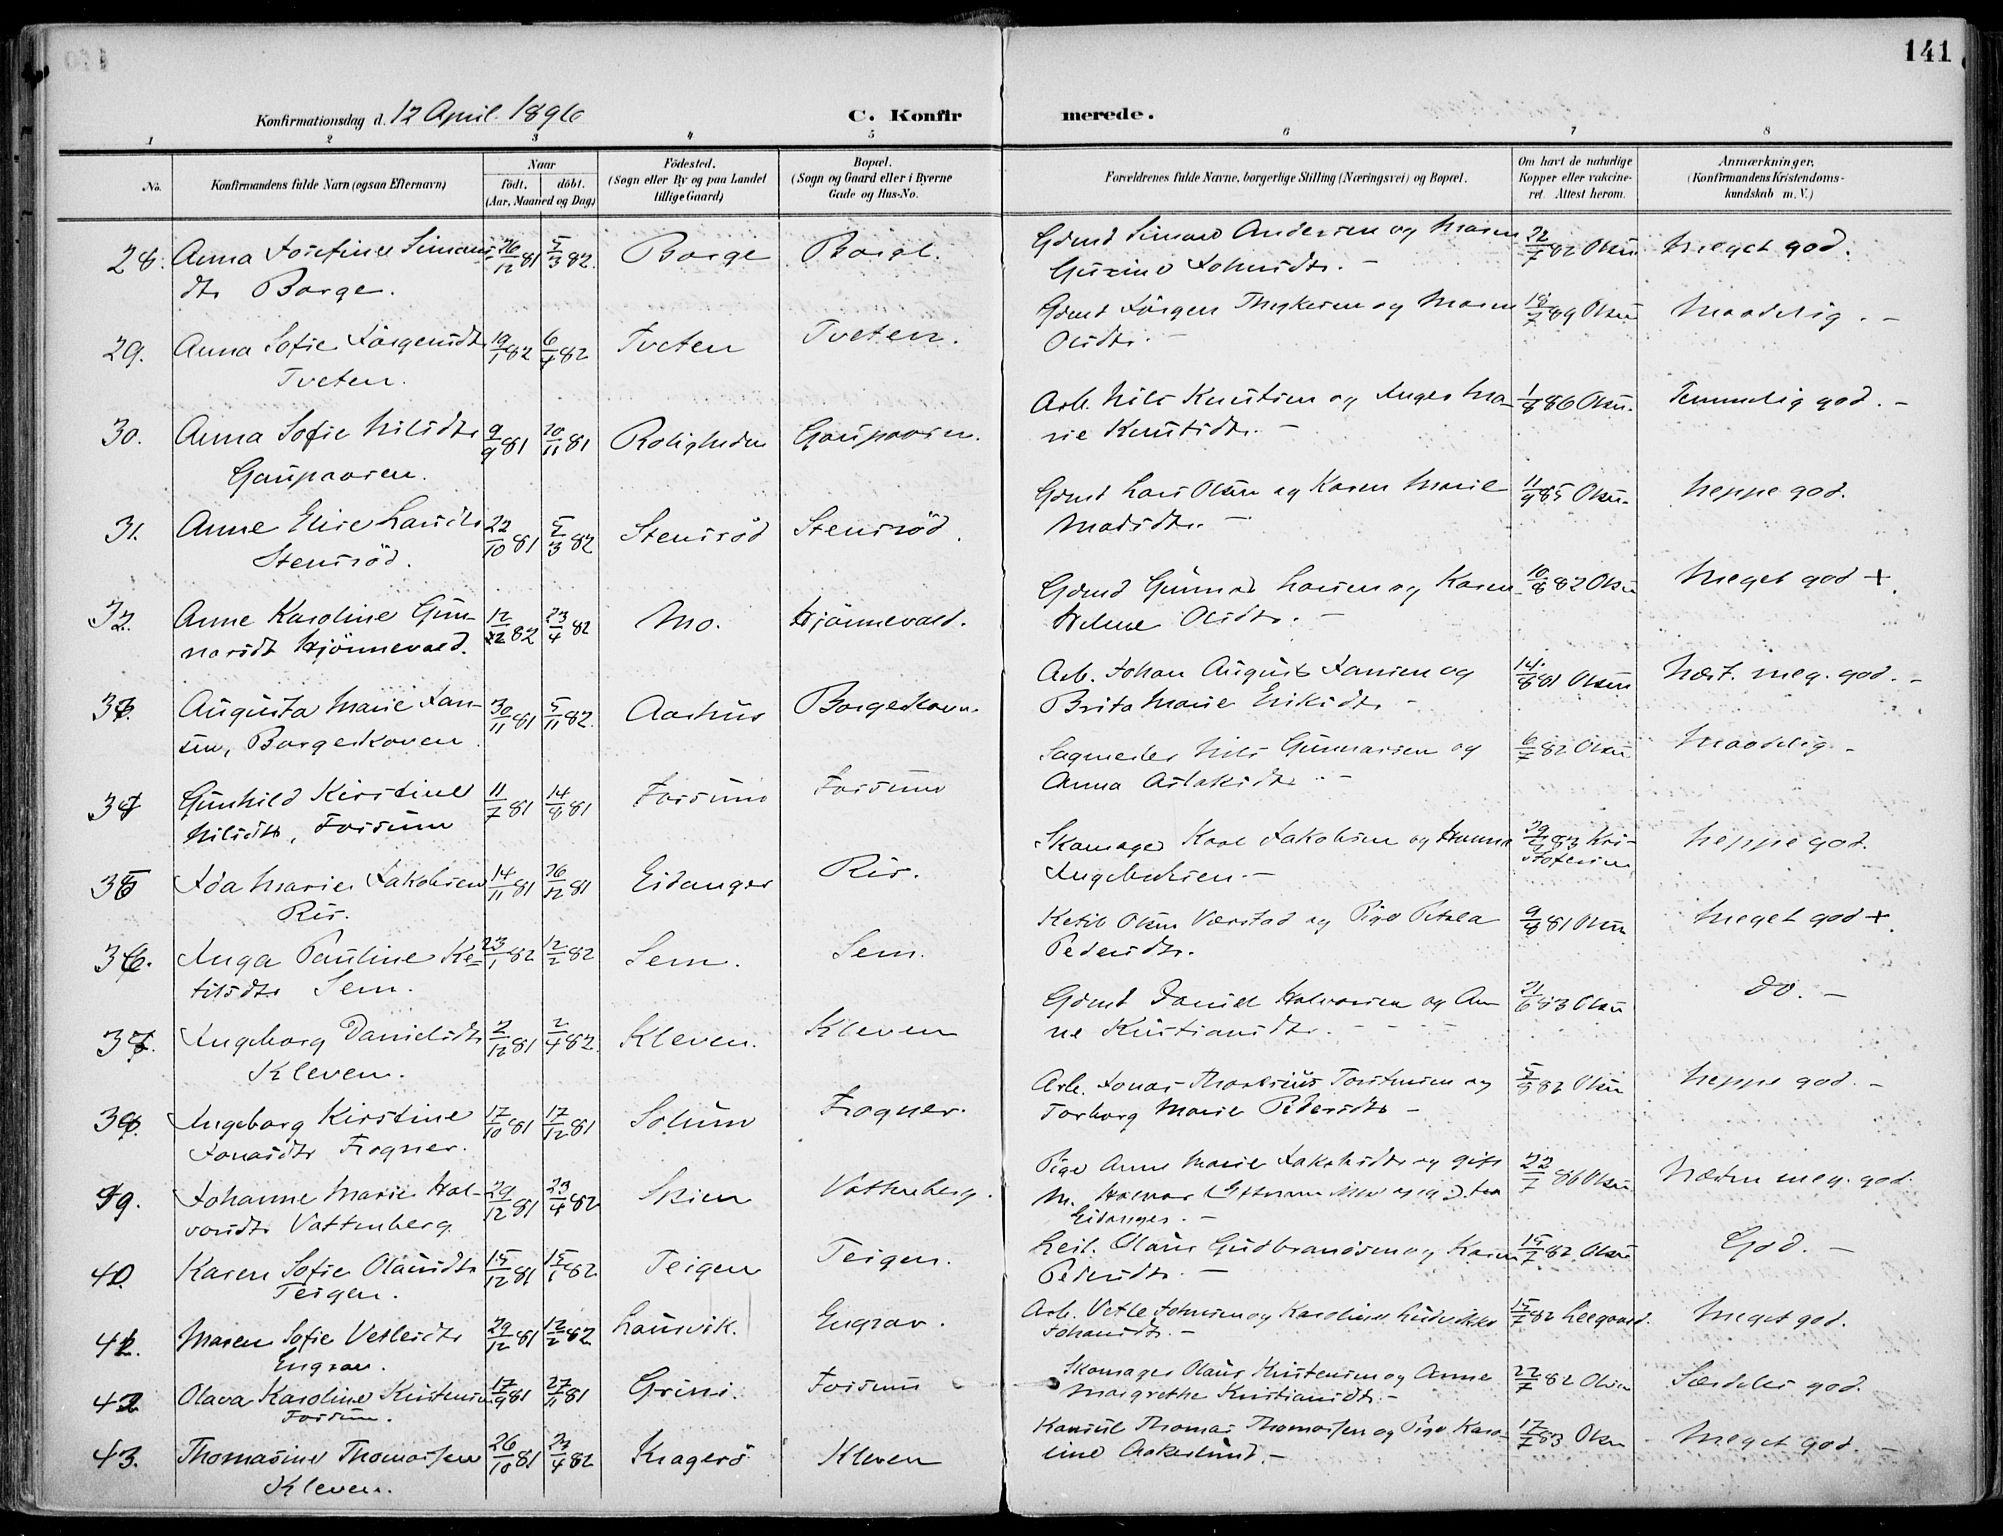 141
Konfirmationsdag d. 12 April 1896
C. Konfirmerede.
1 2 3 4 5 6 7 8
No.
Konfirmandens fulde Navn (ogsaa Efternavn)
Naar
født. døbt.
(Aar, Maaned og Dag)
Fødested.
(Sogn eller By og paa Landet
tillige Gaard)
Bopæl.
(Sogn og Gaard eller i Byerne
Gade og Hus-No.
Forældrenes fulde Navne, borgerlige Stilling (Næringsvei) og Bopæl.
Om havt de naturlige
Kopper eller vakcine-
ret. Attest herom.
Anmærkninger.
(Konfirmandens Kristendoms-
kundskab m. V.)
28. Anna Josefine Simons- 26/12 81 5/3 82. Borge Borge. Gdmd Simon Andersen og Maren 22/7 82 Olsen Meget god.
dtr Borge. Gurine Johnsdtr. -
29. Anna Sofie Jörgensdtr 19/1 82 6/4 82 Tveten Tveten. Gdmd Jörgen Thykesen og Maren 18/7 89 Olsen Maadelig. -
Tveten. Olsdtr. -
30. Anna Sofie Nilsdtr 9/9 81 20/11 81 Roligheden Gaupaasen. Arb. Nils Knutsen og Inger Ma- 1/8 86 Olsen. Temmelig god. -
Gaupaasen. rie Knutsdtr. -
31. Anne Elise Larsdtr 22/10 81 5/3 82 Stensröd Stensröd. Gdmd Lars Olsen og Karen Marie 11/9 85 Olsen. Neppe god.
Stensröd. Madsdtr. -
32. Anne Karoline Gun- 12/2 82 23/4 82 Mo. Hjönnevald. Gdmd Gunnar Larsen og Karen 10/8 82 Olsen Meget god +.
narsdt Hjönnevald. Helene Olsdtr. -
33. Augusta Marie Jan- 30/11 81 5/11 82. Aarhus Borgeskoven. Arb. Johan August Jansen og 14/8 81 Olsen Næst. meg. god. -
sen, Borgeskoven. Brita Marie Eriksdtr -
34 Gunhild Kirstine 11/7 81 14/8 81 Fossum Fossum Sagmester Nils Gunnarsen og 6/7 82 Olsen Maadelig -
Nilsdtr, Fossum Anna Aslaksdtr -
35 Ida Marie Jakobsen 14/11 81 26/12 81 Eidanger Ris. Skomager Karl Jakobsen og Hanna Kri- Neppe god.
Ris. Ingebretsen. - stofersen
36. Inga Pauline Ke- 23/1 82 12/2 82 Sem. Sem. Ketil Olsen Værstad og Pige Petrea 9/8 81 Olsen Meget god +.
tilsdtr Sem. Pedersdtr.
37. Ingeborg Danielsdtr 2/12 81 2/4 82. Kleven. Kleven Gdmd Daniel Halvorsen og An 21/6 83 Olsen do. -
Kleven. ne Kristiansdtr. -
38. Ingeborg Kirstine 17/10 81 17/12 81 Solum Frogner. Arb. Jonas Torstensen og 5/8 82 Olsen Neppe god. -
Jonasdtr Frogner. Torborg Marie Pedersdtr -
39. Johanne Marie Hal- 29/12 81 23/4 82 Skien Vattenberg. Pige Anne Marie Jakobsdtr og gift 22/7 86 Olsen Næsten meg. god.
vorsdtr Vattenberg. m. Halvor fra
Eidanger. -
40. Karen Sofie Olausdtr 15/12 81 15/1 82 Teigen Teigen. Leil. Olaus Gudbrandsen og Karen 15/7 82 Olsen God. -
Teigen. Pedersdtr -
41. Maren Sofie Vetlesdtr 29/12 81 12/2 82 Laurvik. Engrav. Arb. Vetle Johnsen og Karoline Ludvikke 15/7 82 Leegaard. Meget god.
Engrav. Johansdtr. -
42 Olava Karoline Kristensen 17/9 81 27/11 81 Grini. Fossum Skomager Olaus Kristensen og Anne 22/7 82 Olsen Særdeles god.
Fossum. Margrethe Kristiansdtr. -
43. Thomasine Thomassen 26/10 81 23/4 82 Kragerö Kleven Konsul Thomas Thomassen og Pige Karo- 17/7 83 Olsen Meget god. -
Kleven. line Aakerlund. -